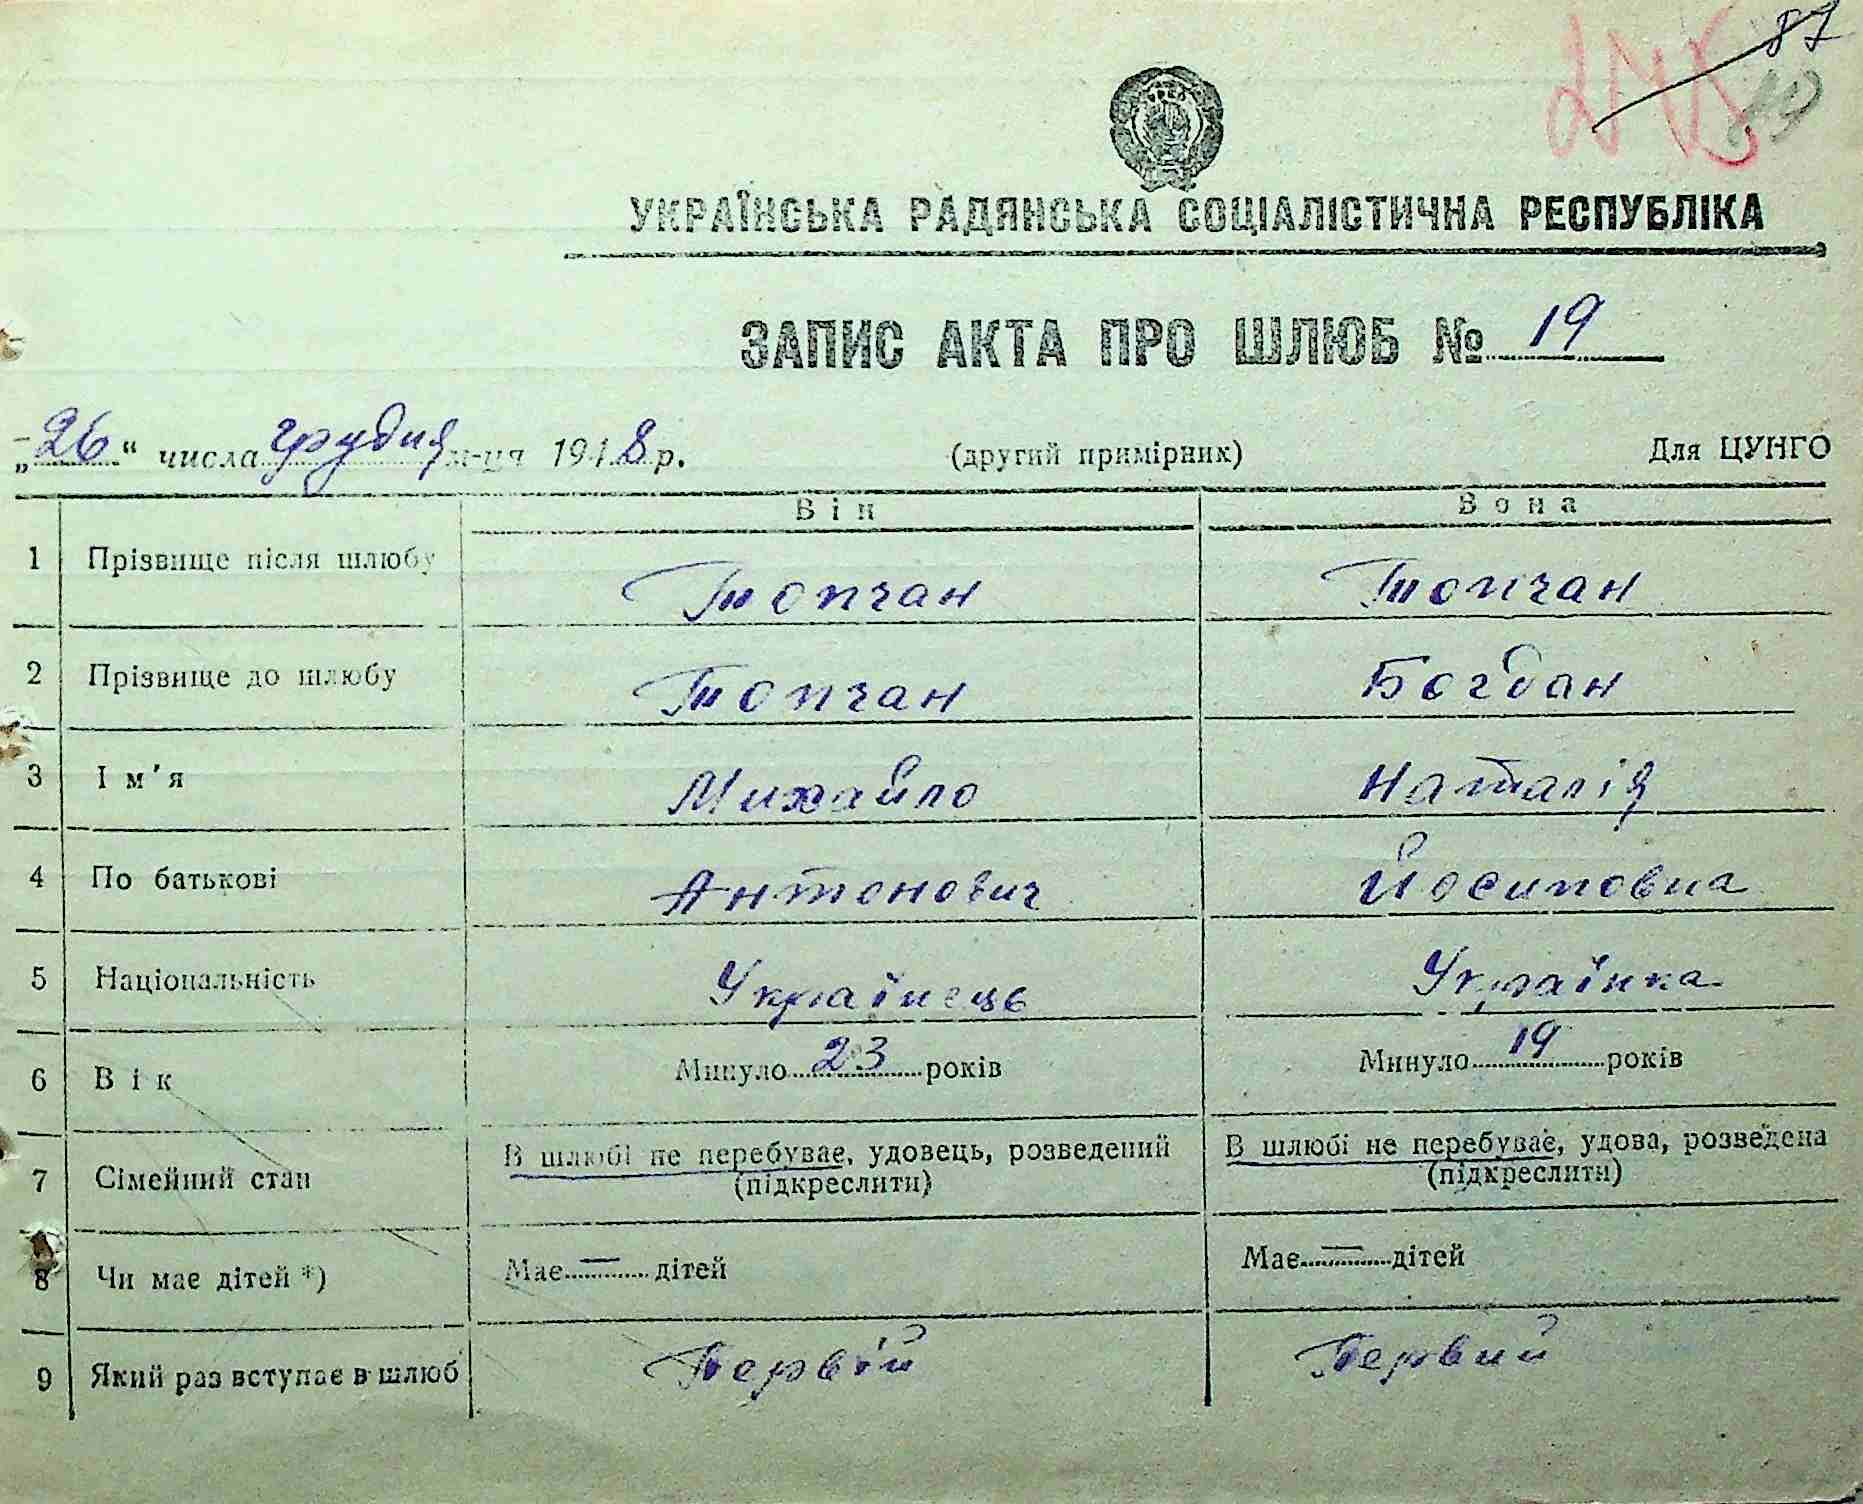 87
19
УКРАЇНСЬКА РАДЯНСЬКА СОЦІАЛІСТИЧНА РЕСПУБЛІКА
ЗАПИС АКТА ПРО ШЛЮБ № 19
„26“ числа грудня м-ця 1948 р. (другий примірник) Для ЦУНГО
Він Вона
1 Прізвище після шлюбу Топчан Топчан
2 Прізвище до шлюбу Топчан Богдан
3 Ім'я Михайло Наталія
4 По батькові Антонович Йосиповна
5 Національність Українець Українка
6 Вік Минуло 23 років Минуло 19 років
7 Сімейний стан В шлюбі не перебуває, удовець, розведений В шлюбі не перебуває, удова, розведена
(підкреслити) (підкреслити)
8 Чи має дітей *) Має — дітей Має — дітей
9 Який раз вступає в шлюб Первій Первий